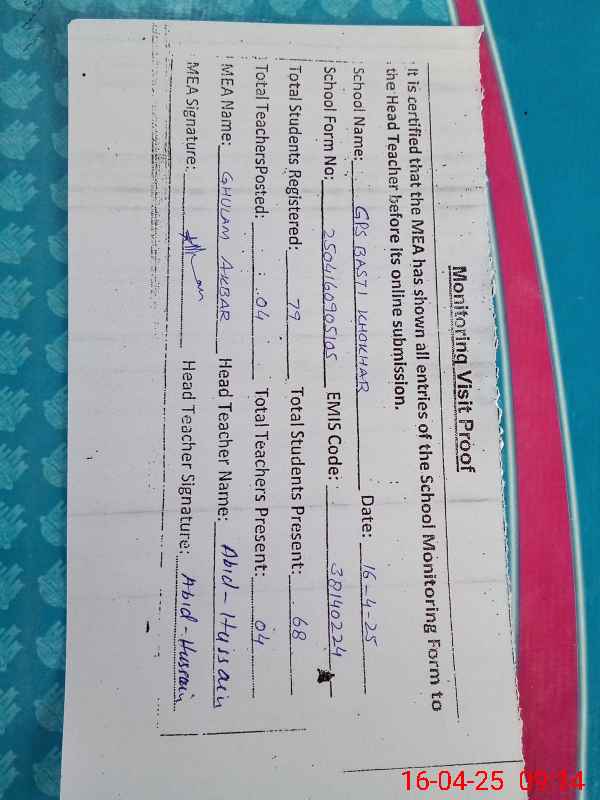 Monitoring Visit Proof
It is certified that the MEA has shown all entries of the School Monitoring Form to
the Head Teacher before its online submission.
School Name: GPS BASTI KHOKHAR Date: 16-4-25
School Form No: 250416090510S EMIS Code: 38140224
Total Students Registered: 79 Total Students Present: 68
Total TeachersPosted: 04 Total Teachers Present: 04
MEA Name: GHULAM AKBAR Head Teacher Name: Abid-Hussain
MEA Signature: Head Teacher Signature: Abid-Hussain
16-04-25 09:14